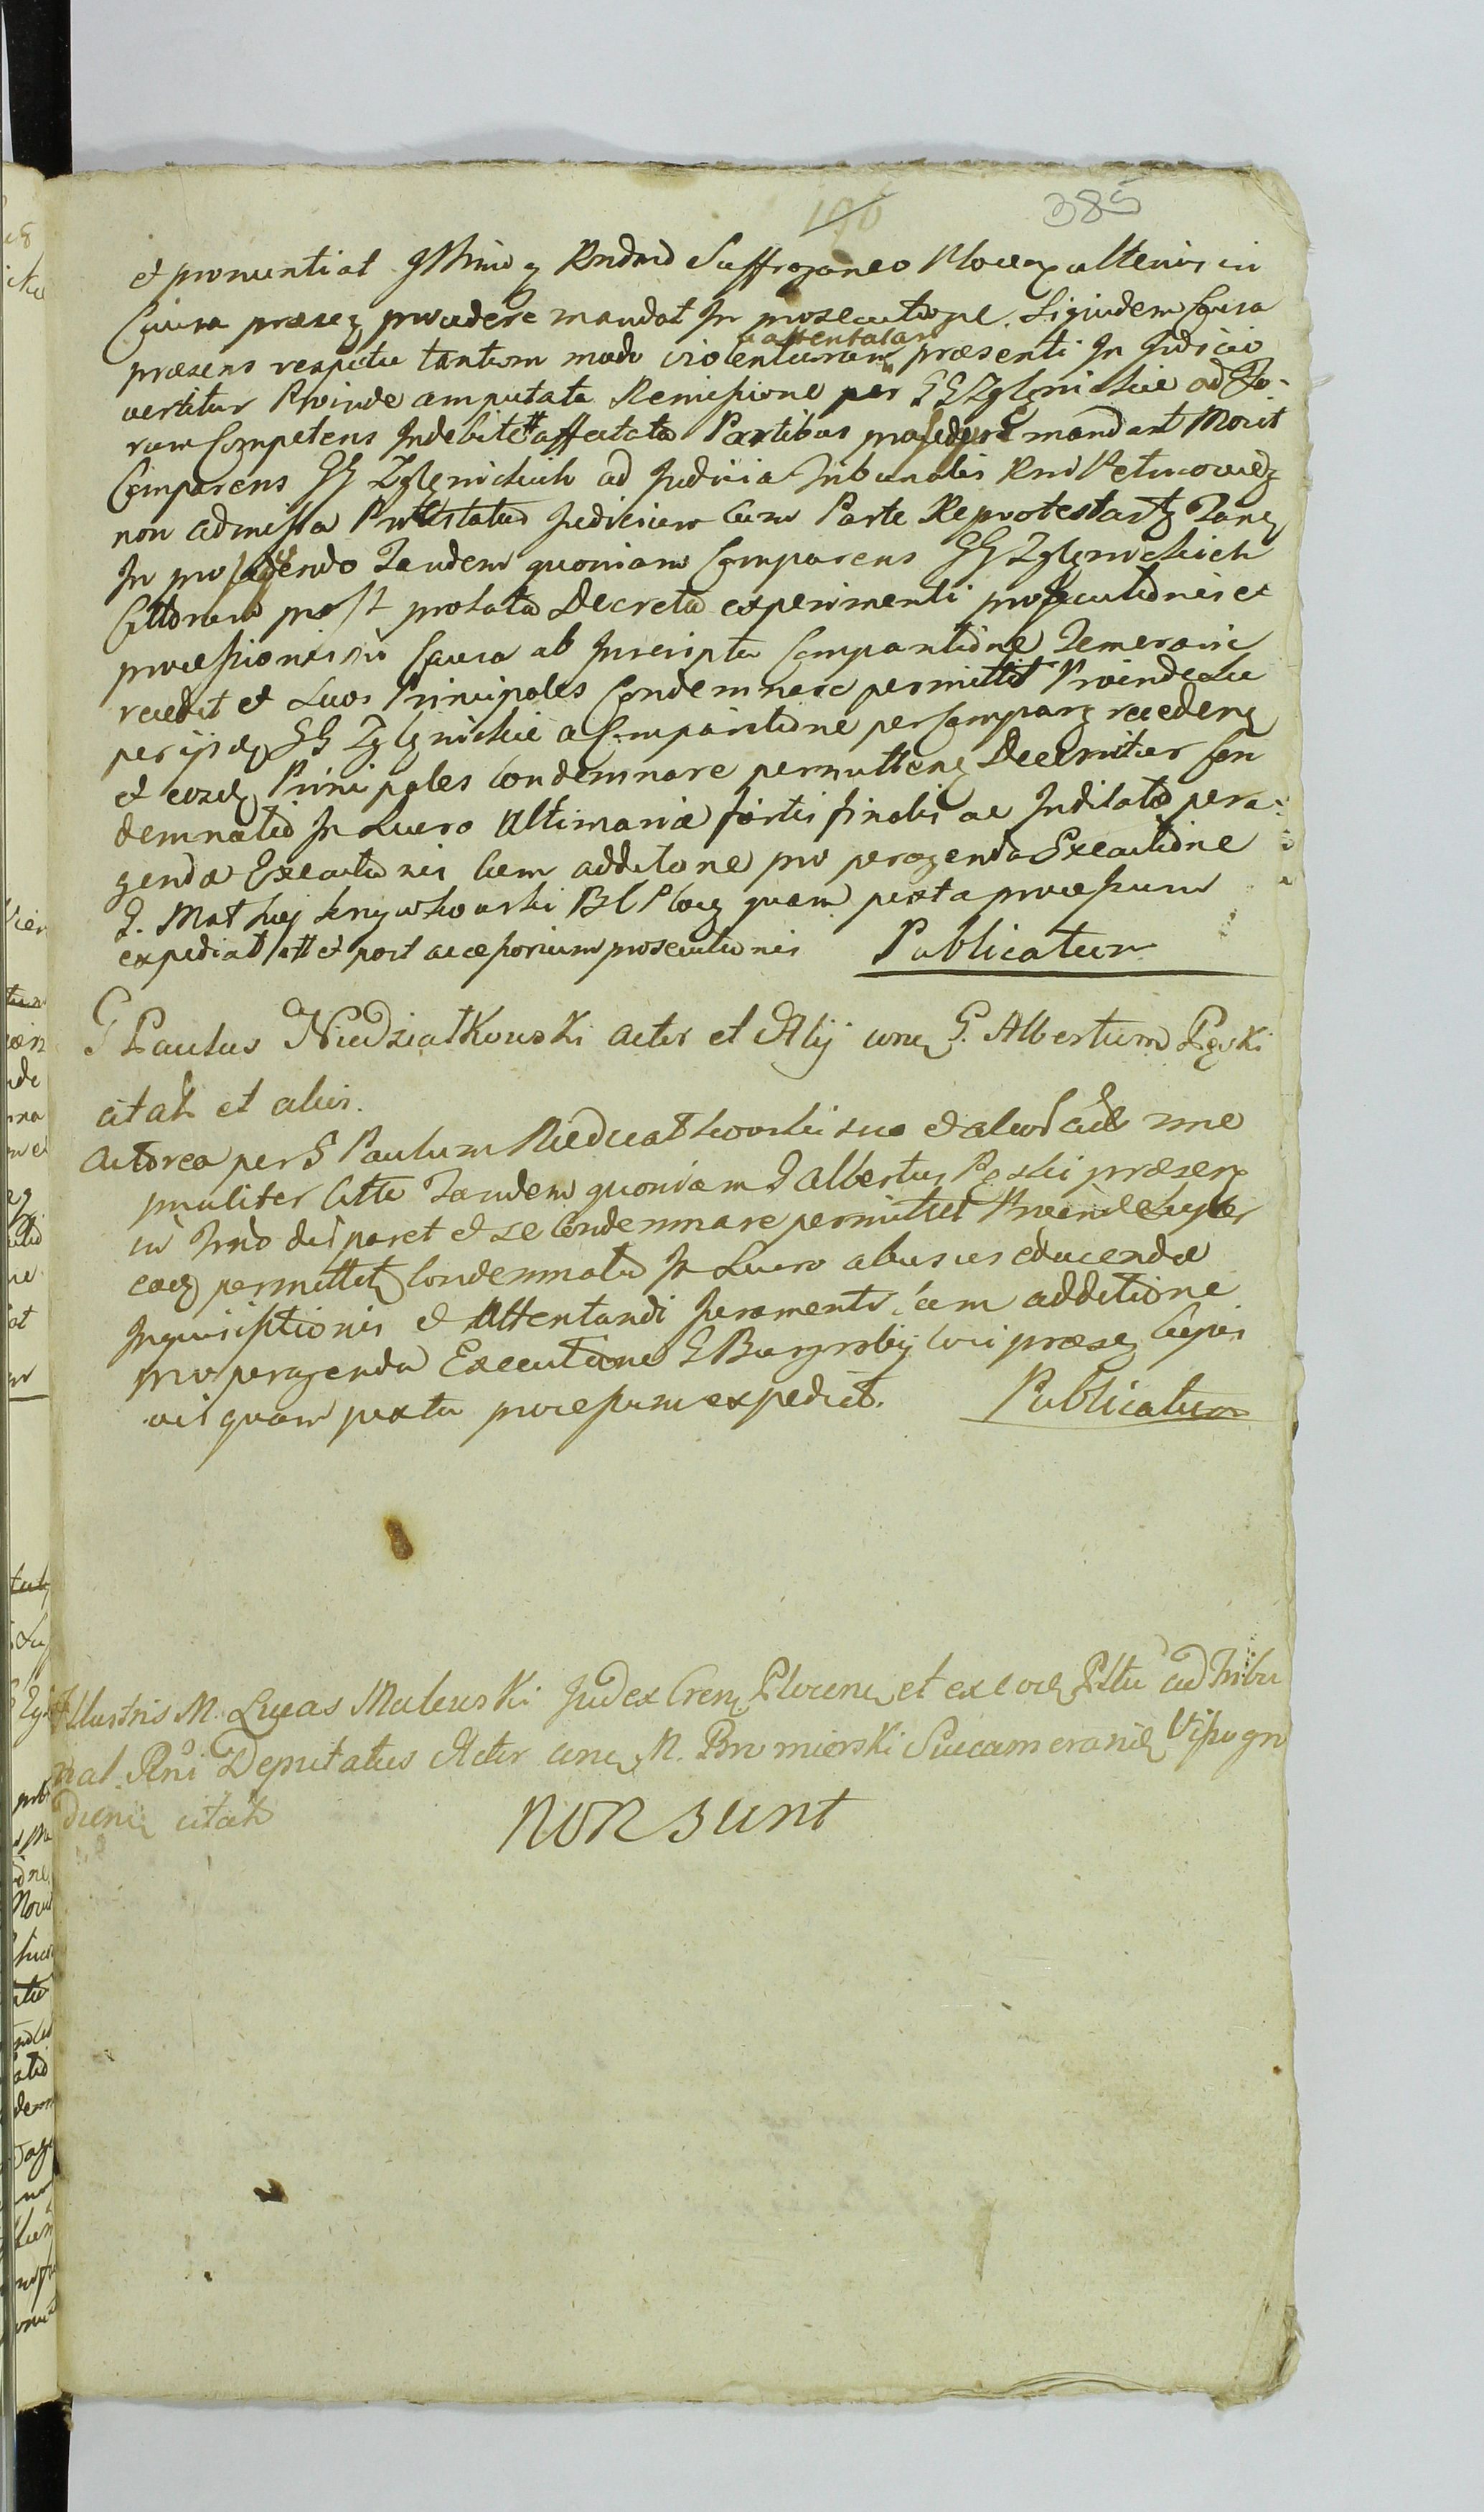 190 385
et pronuntiat Rndmo Suffraganeo Plocen alterius in
Causa præsen procedere mandat In prosecutione. Siquidem Causa
præsens respectu tantum modo violentiarum attentatar præsenti In Judicio
vertitur Proinde amputata Remissione per GG Zglenickie ad Fo-
rum Competens Indebite affectata Partibus procedere mandant Movit
Comparens GG Zglenickich ad Judicia Tribunalis Rni
non admissa Protestatus Judicium cum Parte Reprotestan
In procedendo Tandem quoniam Comparens GG Zglenickich
Cittorum post prolata Decreta experimenti prosecutionis et
processionis in Causa ab Inscripta Comparitione Temerarie
recedit et Suos Principales Condemnare permittit Proinde Su
per ijsdem GG Zglenickie a Comparitione per Comparen receden
et eosdem Principales condemnare permitten Decernitur Con
demnatio In Lucro Ultimariæ fortis finalis ac Indilatæ pera-
gendæ Executionis Cum additione pro peragenda Executione
G. Mathiej BC Ploc quam juxta processum
expediat et post accessorium prosecutionis Publicatum
G Paulus Niedziałkowski Actor et Alij con G. Albertum Pęski
citat et alios.
Actorea per G Paulum Niedziałkowski suo et alior
pnaliter citta Tandem quoniam G Albertus Pęski præsen
in Jndo disparet et se condemnare permittit Proinde Super
eod permitten Condemnatio In Lucro abusus educendæ
Inquisitionis et Attentandi Juramenti cum additione
pro peragenda Executione G Burgrabij loci præsen cujus
vis quam juxta processum expediet. Publicatum
Illustris M. Lucas Malewski Judex Cren Plocen et ex eod Pltu ad Tribu
nal Rni Deputatus Actor con M. Bromierski Succamerarid Vissogro
dien citat
non sunt